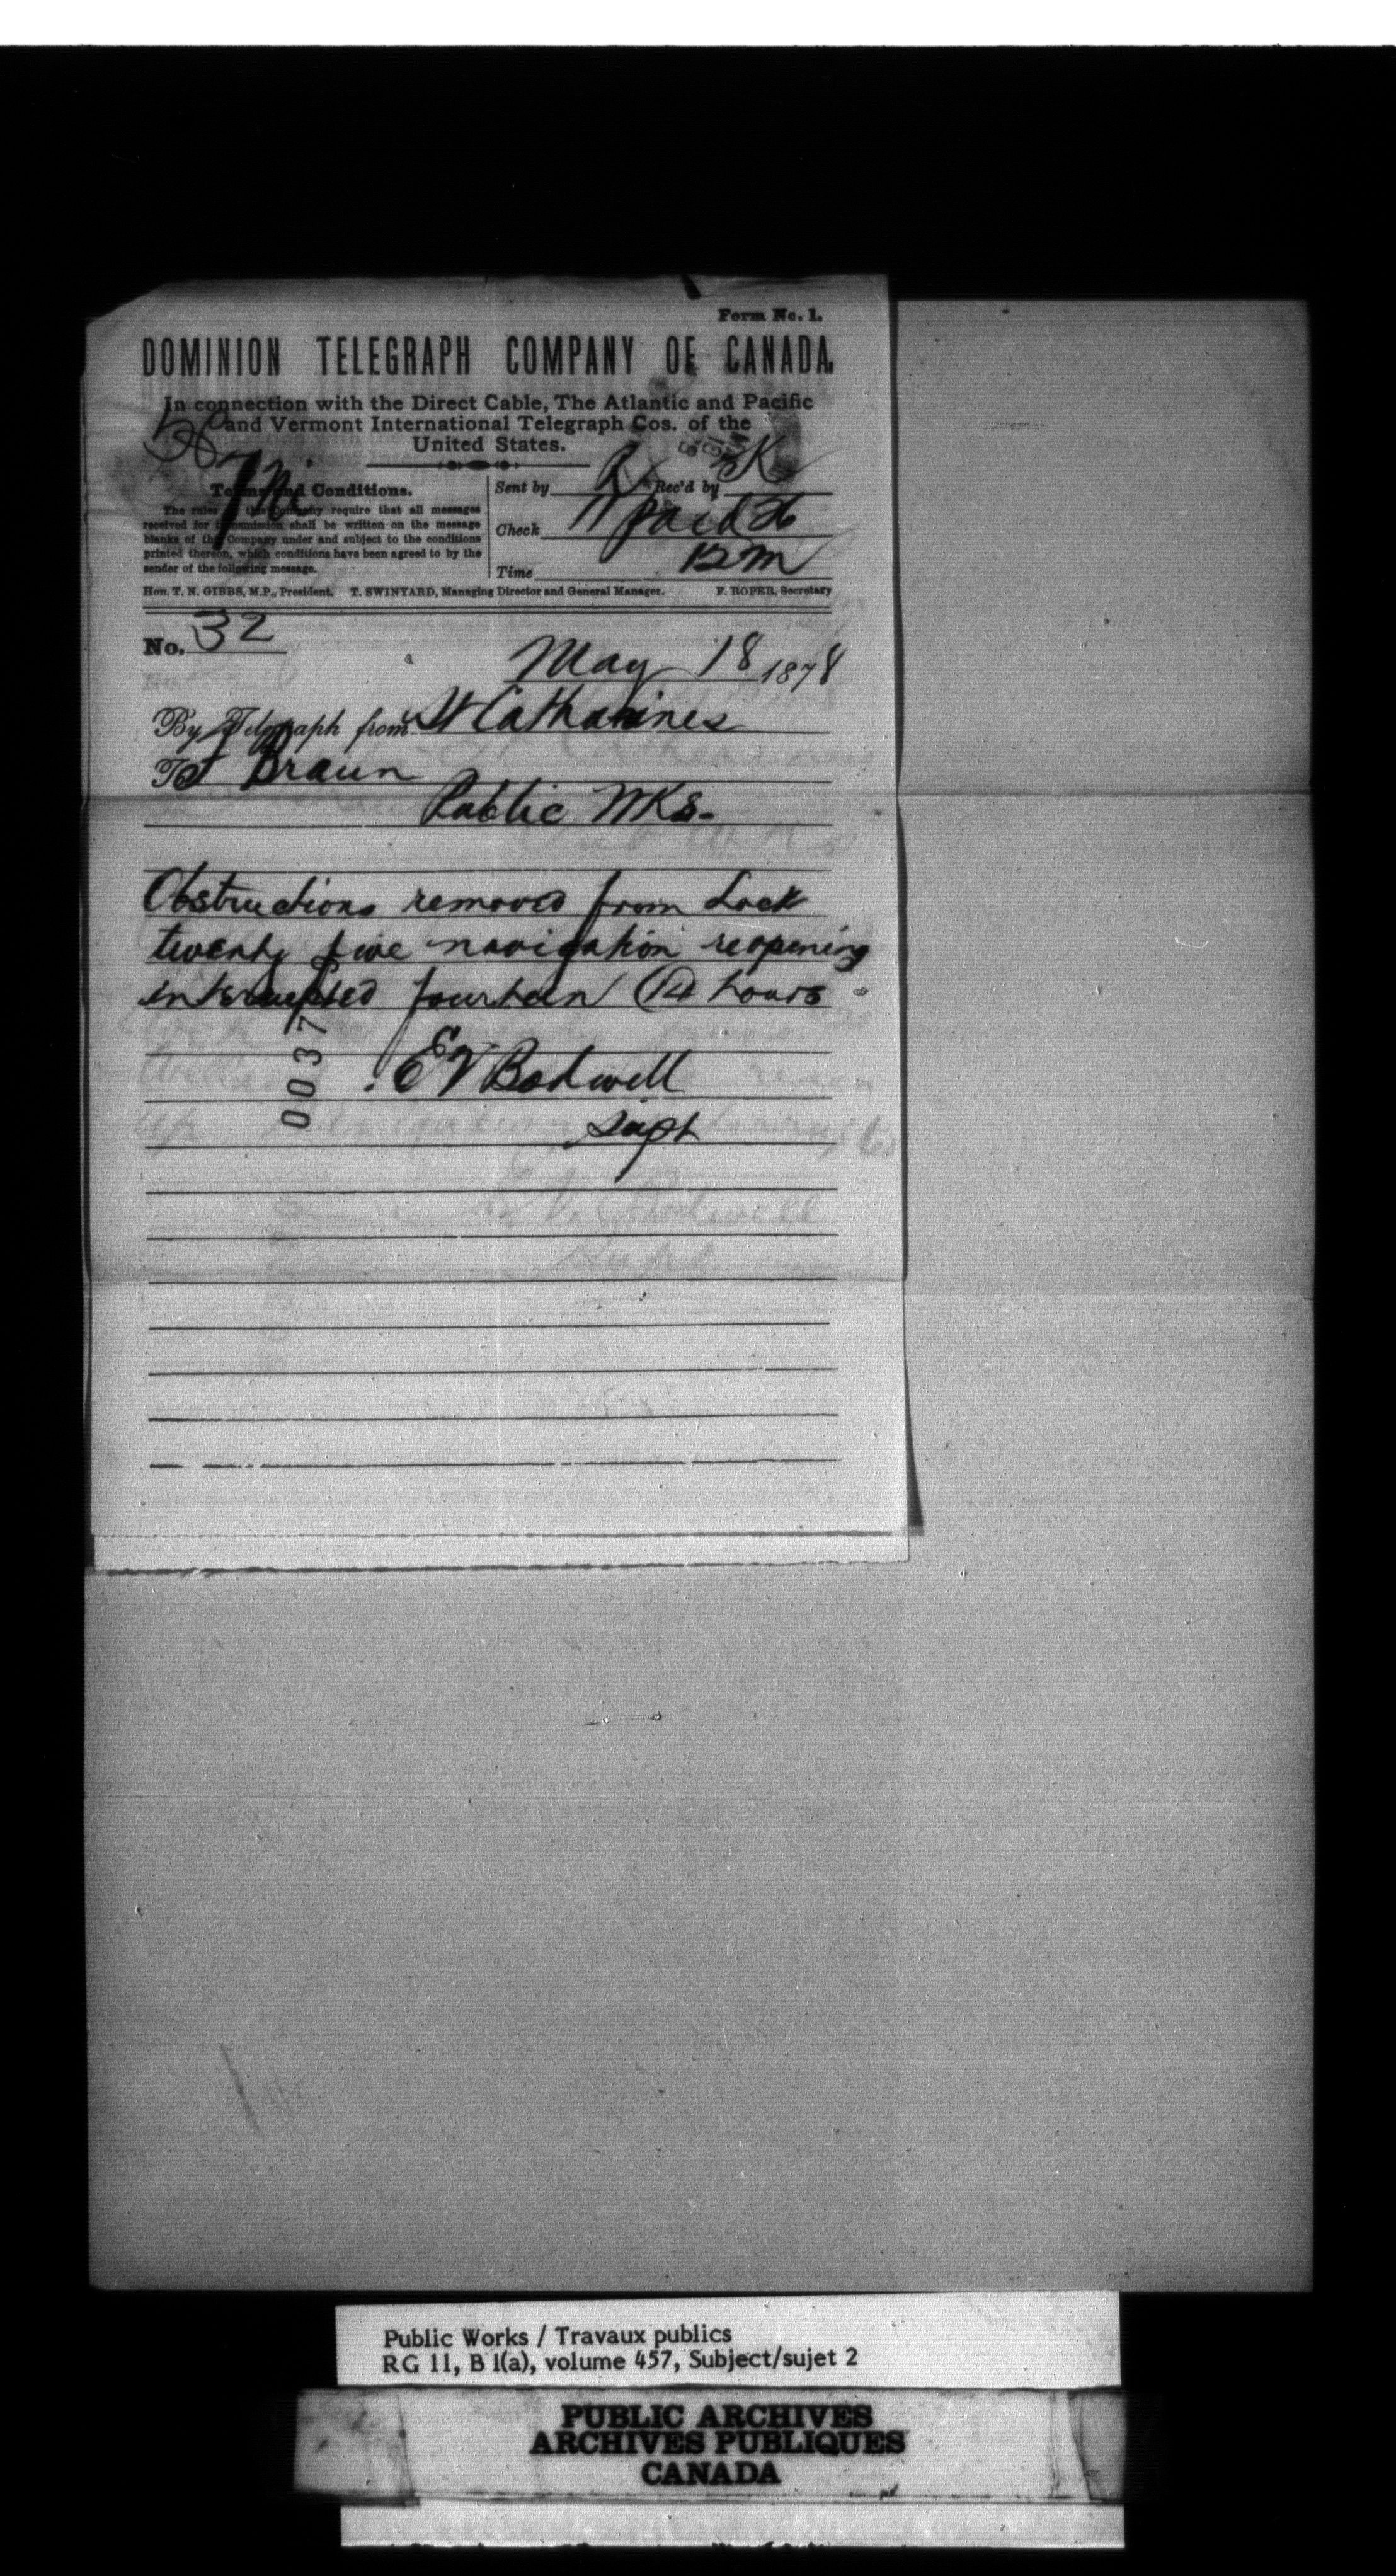 Form No. 1.
DOMINION TELEGRAPH COMPANY OF CANADA.
In connection with the Direct Cable, The Atlantic and Pacific
and Vermont International Telegraph Cos. of the
United States.
Terms and Conditions.
The rules of this Company require that all messages
received for transmission shall be written on the message
blanks of the Company under and subject to the conditions
printed thereon, which conditions have been agreed to by the
sender of the following message.
Sent by Rec'd by K
Check 11 paid 26
Time 12 m
Hon. T. N. GIBBS, M.P., President. T. SWINYARD, Managing Director and General Manager. F. ROPER, Secretary
No. 32
May 18 1878
By Telegraph from St Catharines
To F Braun
Public Wks-
Obstructions removed from Lock
twenty five navigation reopening
interrupted fourteen 14 hours
0037
E V Bodwell
Supt
Public Works / Travaux publics
RG 11, B 1(a), volume 457, Subject/sujet 2
PUBLIC ARCHIVES
ARCHIVES PUBLIQUES
CANADA